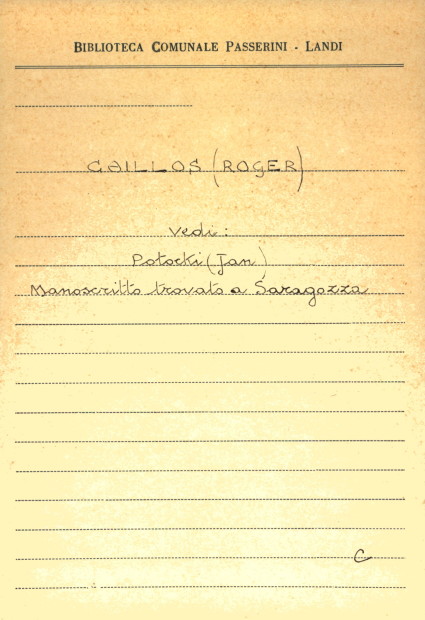 BIBLIOTECA COMUNALE PASSERINI - LANDI
GAILLOS (ROGER)
Vedi:
Potocki (Jan)
Manoscritto trovato a Saragozza
C